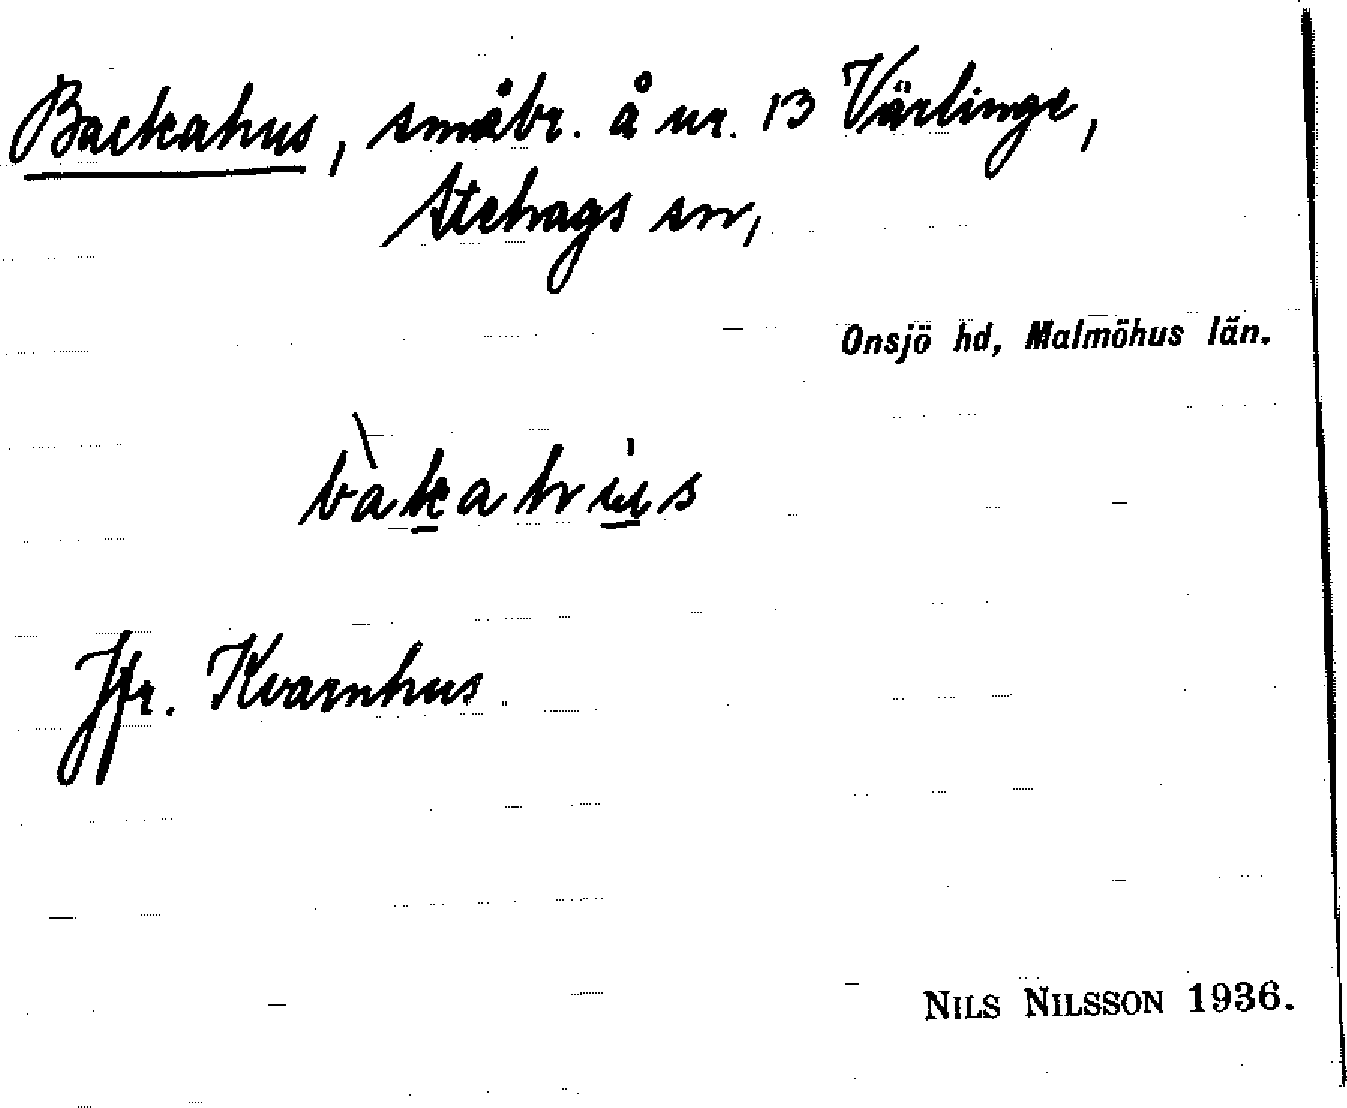 Backahus, småbr. å nr. 13 Värlinge,
Stehags sn,
Onsjö hd, Malmöhus län.
Jfr. Kvarnhus.
NILS NILSSON 1936.